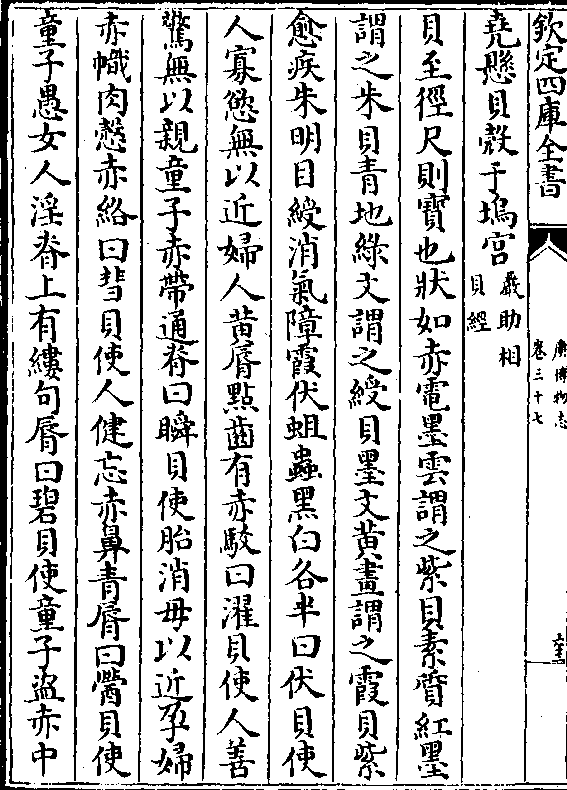 欽定四庫全書
廣博物志
卷三十七
堯懸貝殼于塢宮
嚴助相
貝經
貝至徑尺則寶也狀如赤電墨雲謂之紫貝素質紅墨
謂之朱貝青地綠文謂之綬貝墨文黃畫謂之霞貝紫
愈疾朱明目綬消氣障霞伏蛆蟲黑白各半曰伏貝使
人寡慾無以近婦人黃脣點齒有赤駮曰濯貝使人善
驚無以親童子赤帶通脊曰瞬貝使胎消毋以近孕婦
赤幟肉愨赤絡曰彗貝使人健忘赤鼻青脣曰䁝貝使
童子愚女人淫脊上有縷句脣曰碧貝使童子盗赤中